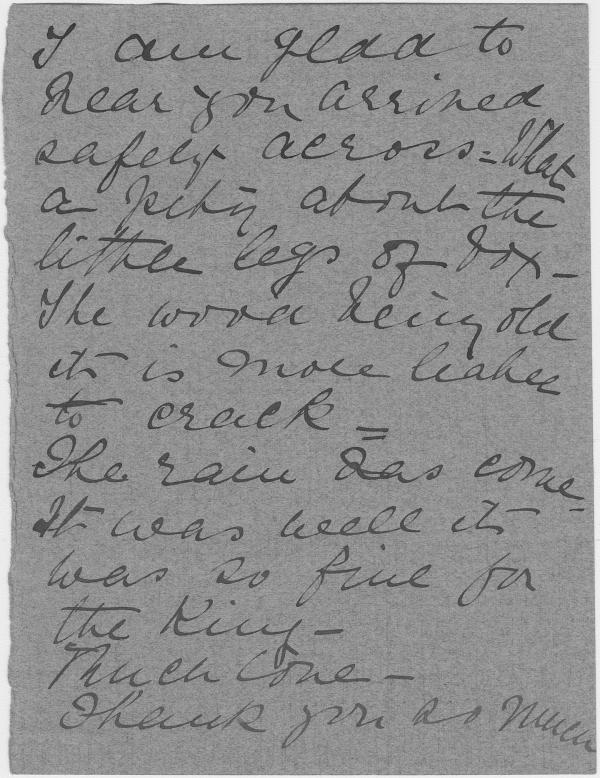 I am glad to
hear you arrived
safely across = What
a pity about the
little legs of box –
The wood being old
it is more liable
to crack =
The rain has come –
It was well it
was so fine for
the King –
Much love –
Thank you so much